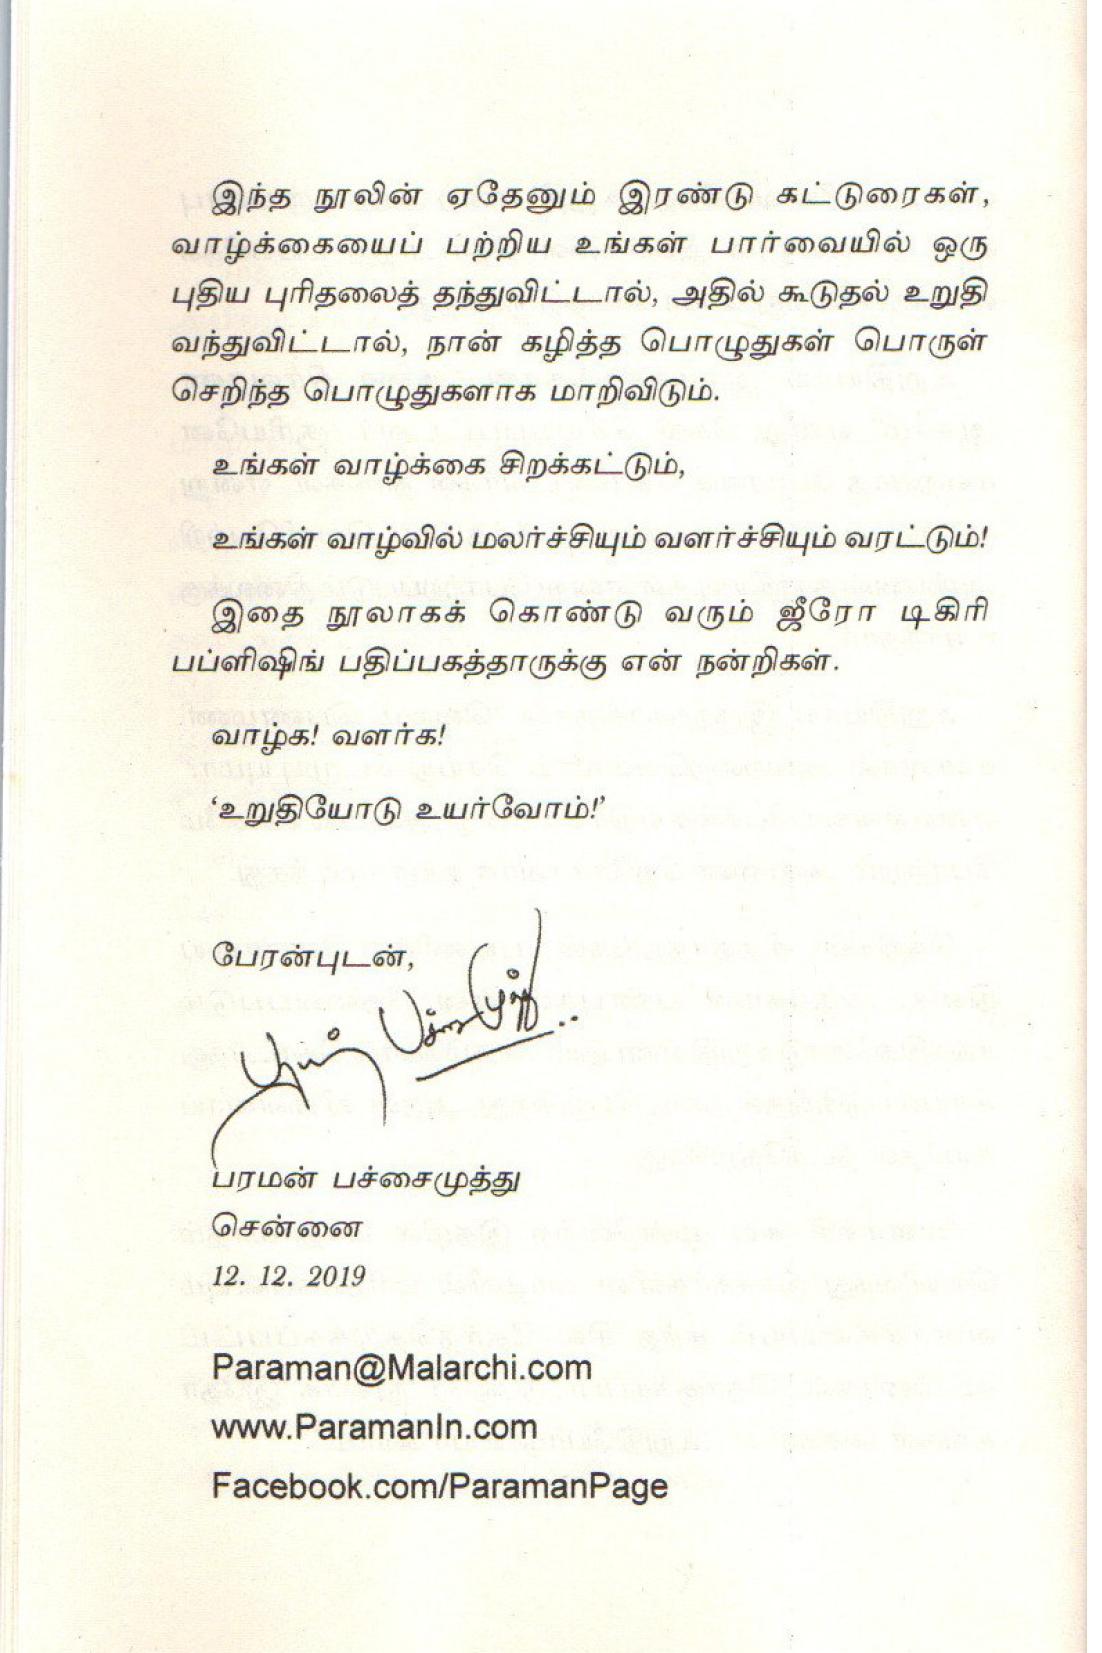 இந்த நூலின் ஏதேனும் இரண்டு கட்டுரைகள்,
வாழ்க்கையைப் பற்றிய உங்கள் பார்வையில் ஒரு
புதிய புரிதலைத் தந்துவிட்டால், அதில் கூடுதல் உறுதி
வந்துவிட்டால், நான் கழித்த பொழுதுகள் பொருள்
செறிந்த பொழுதுகளாக மாறிவிடும்.
உங்கள் வாழ்க்கை சிறக்கட்டும்,
உங்கள் வாழ்வில் மலர்ச்சியும் வளர்ச்சியும் வரட்டும்!
இதை நூலாகக் கொண்டு வரும் ஜீரோ டிகிரி
பப்ளிஷிங் பதிப்பகத்தாருக்கு என் நன்றிகள்.
வாழ்க! வளர்க!
‘உறுதியோடு உயர்வோம்!’
பேரன்புடன்,
பரமன் பச்சைமுத்து
சென்னை
12. 12. 2019
Paraman@Malarchi.com
www.ParamanIn.com
Facebook.com/ParamanPage